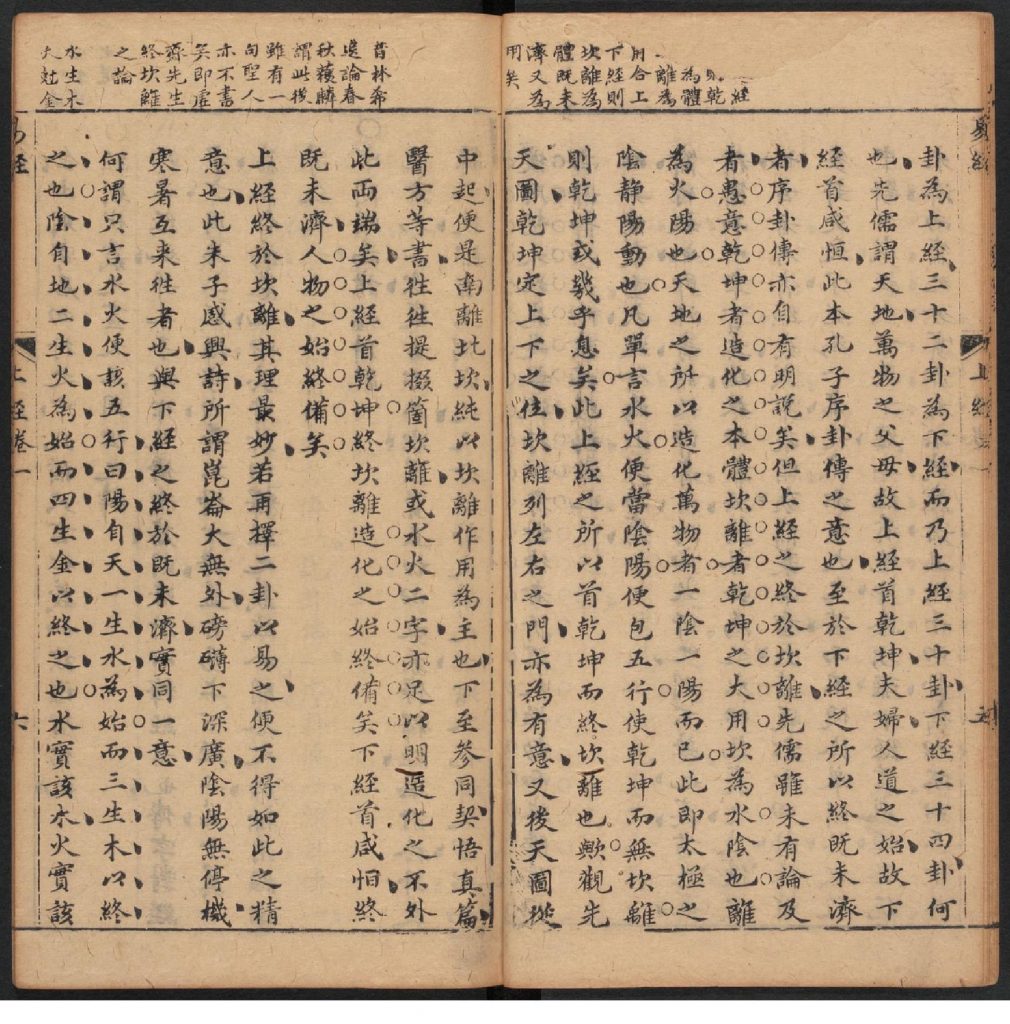 經
乾
為體
離為
用合上
下經則
坎離為
體既未
濟又為
用矣
易經
上經
五
卦為上經三十二卦為下經而乃上經三十卦下經三十四卦何
也先儒謂天地萬物之父母故上經首乾坤夫婦人道之始故下
經首咸恒此本孔子序卦傳之意也至於下經之所以終既未濟
者序卦傳亦自有明說矣但上經之終於坎離先儒雖未有論及
者愚意乾坤者造化之本體坎離者乾坤之大用坎為水陰也離
為火陽也天地之所以造化萬物者一陰一陽而已此即太極之
陰静陽動也凡單言水火便當陰陽便包五行使乾坤而無坎離
則乾坤或幾乎息矣此上經之所以首乾坤而終坎離也歟觀先
天圖乾坤定上下之位坎離列左右之門亦為有意又後天圖從
昔林希
逸論春
秋獲麟
謂此後
雖有一
句聖人
亦不書
矣即虛
齋先生
終坎離
之論
水生木
火尅金
中起便是南離北坎純以坎離作用為主也下至參同契悟真篇
醫方等書徃徃提掇箇坎離或水火二字亦足以明造化之不外
此両端矣上經首乾坤終坎離造化之始終俻矣下經首咸恒終
既未濟人物之始終備矣
上經終於坎離其理最妙若再擇二卦以易之便不得如此之精
意也此朱子感興詩所謂崑崙大無外磅礴下深廣陰陽無停機
寒暑互来徃者也與下經之終於既未濟實同一意
何謂只言水火便該五行曰陽自天一生水為始而三生木以終
之也陰自地二生火為始而四生金以終之也水實該木火實該
易經
上經卷一
六